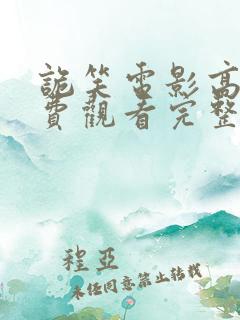 詭笑電影高
費觀看完整
程亞
未任同意禁止转载